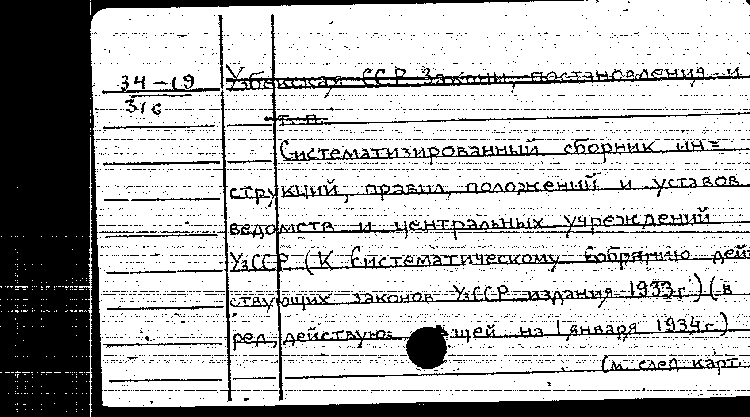 34-19 Узбекская ССР Законы, постановления и
316 т.п.
Систематизированный сборник ин=
струкций, правил, положений и уставов
ведомств и центральных учреждений
УзССР (К Систематическому собранию дей-
ствующих законов УзССР издания 1933г.) (в
ред, действую щей на 1 января 1934г.)
(м. след карт.